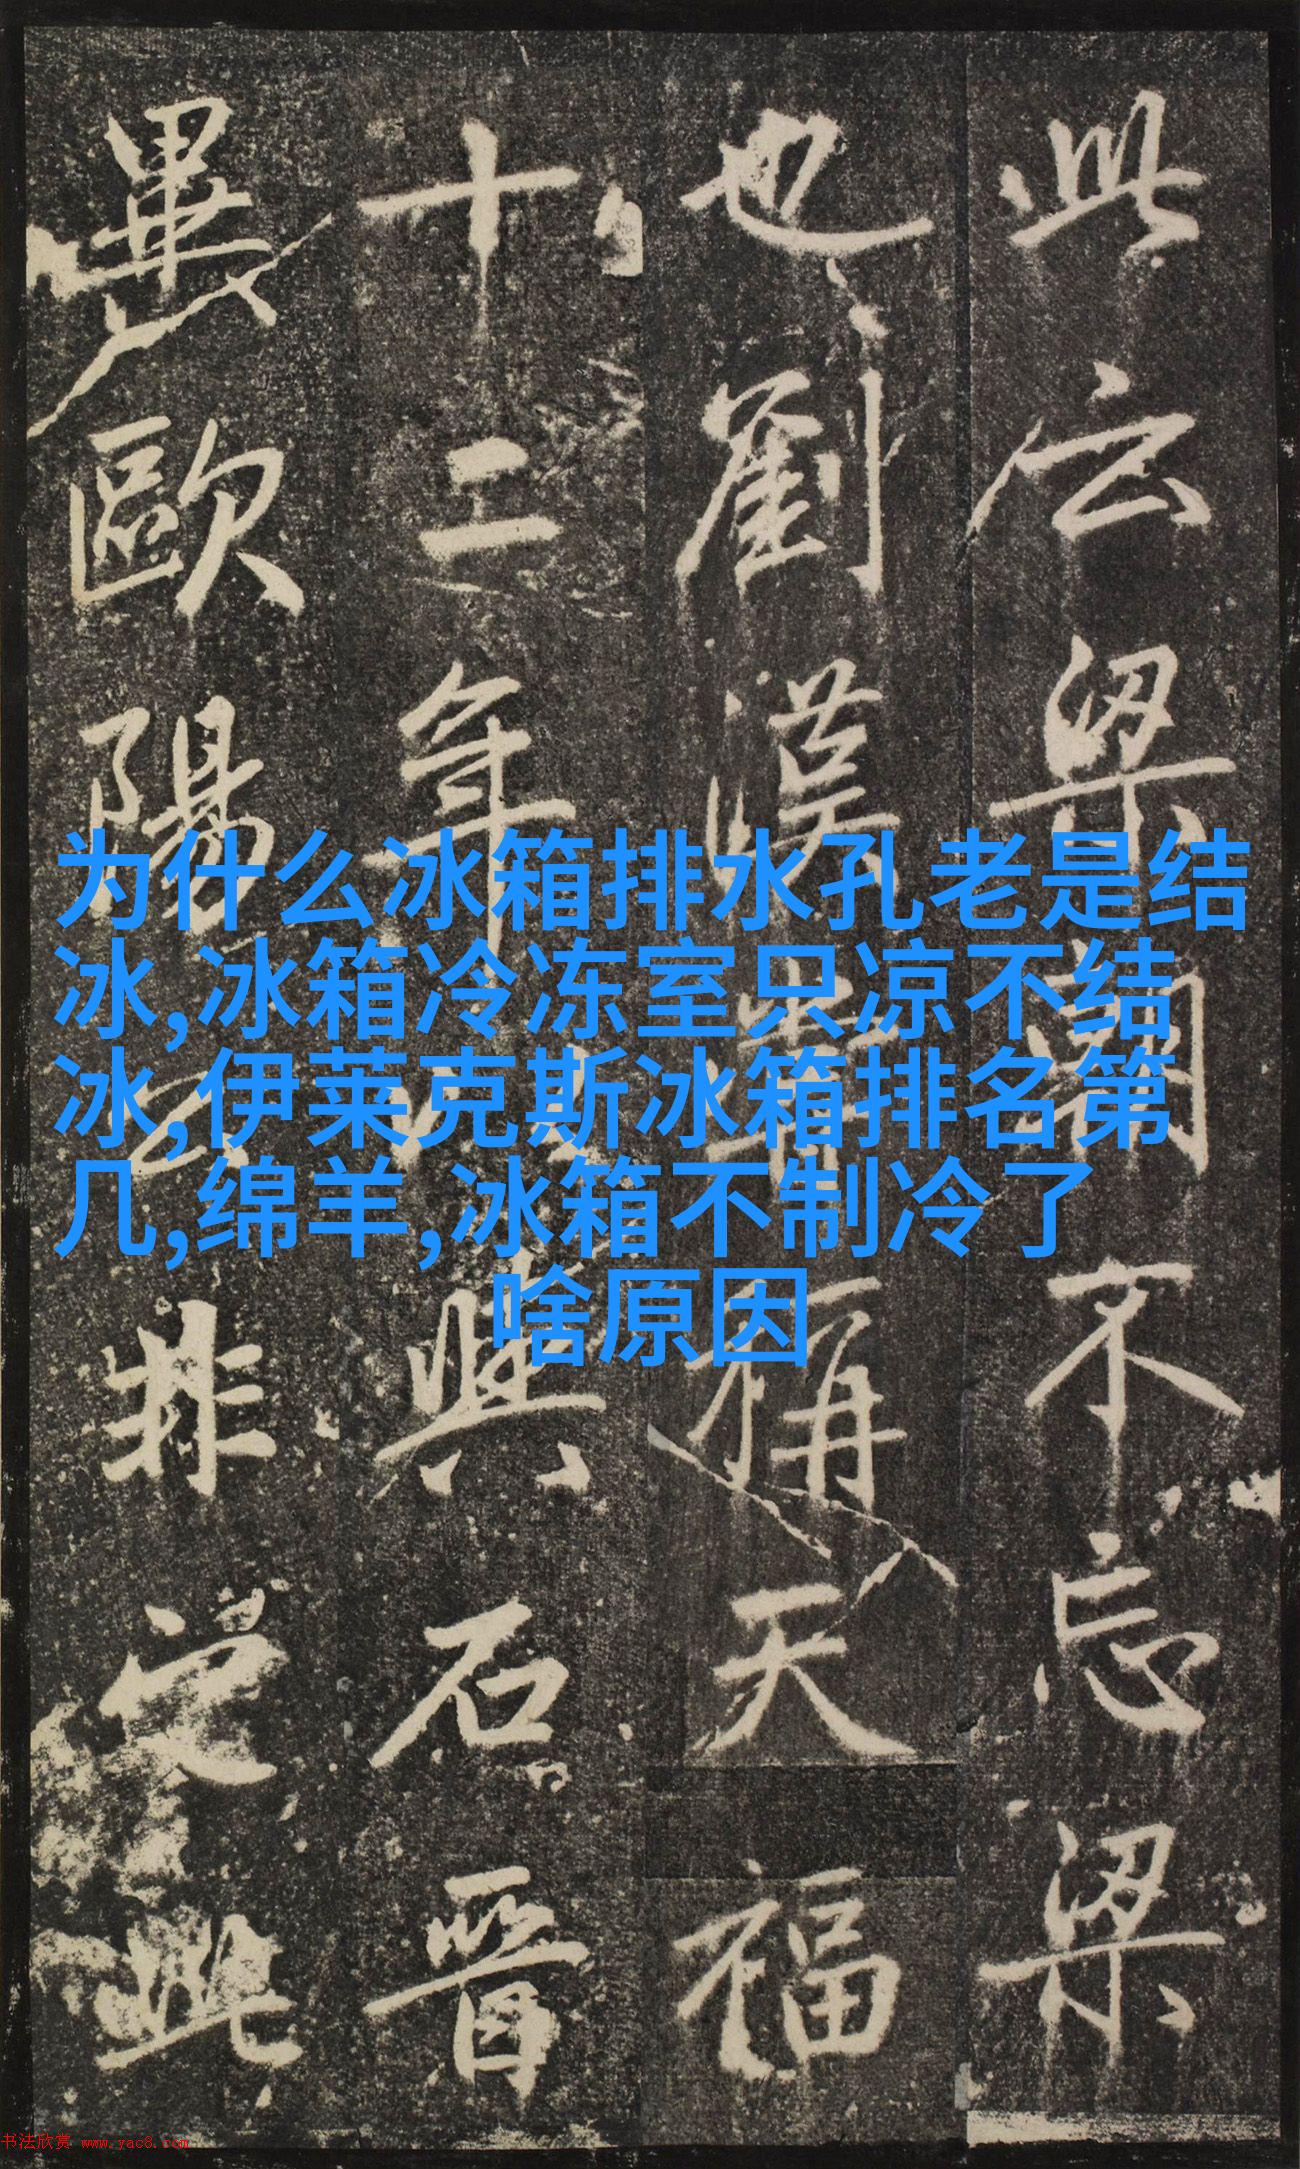 此云梁不忘梁
也劉漢稱天福
十二年與石晉
畢歐陽非此
为什么冰箱排水孔老是结
冰,冰箱冷冻室只凉不结
冰,伊莱克斯冰箱排名第
几,绵羊,冰箱不制冷了
啥原因
书法欣赏 www.yac8.com